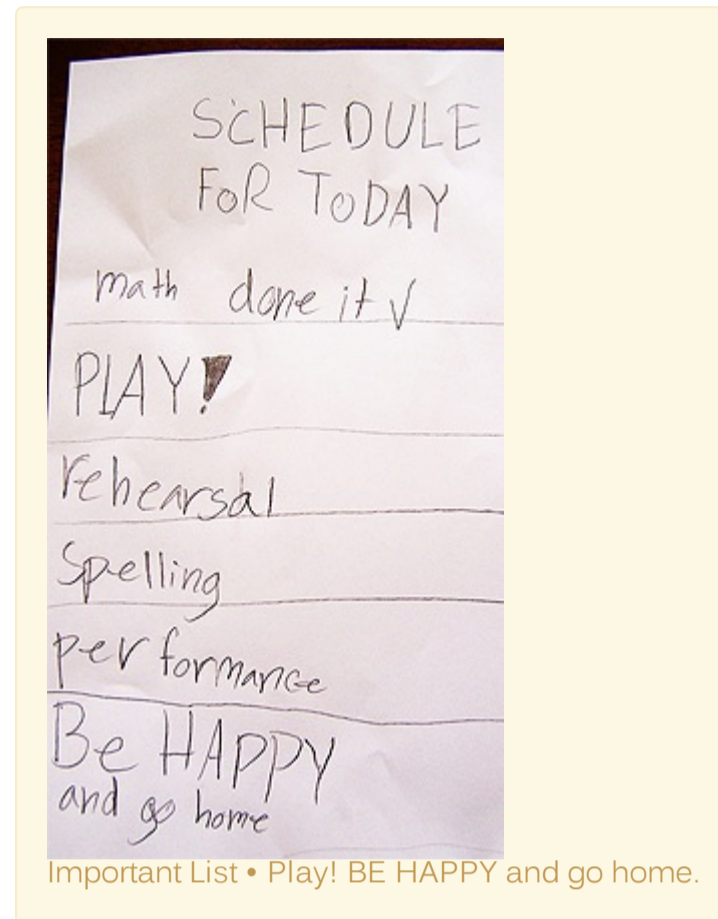 SCHEDULE
FOR TODAY
math done it √
PLAY!
rehearsal
Spelling
performance
Be HAPPY
and go home
Important List • Play! BE HAPPY and go home.